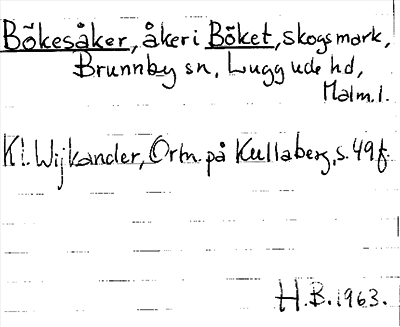 Bökesåker, åker i Böket, skogsmark,
Brunnby sn, Luggude hd,
Malm.l.
Kl. Wijkander, Ortn. på Kullaberg, s. 49 f.
H.B. 1963.